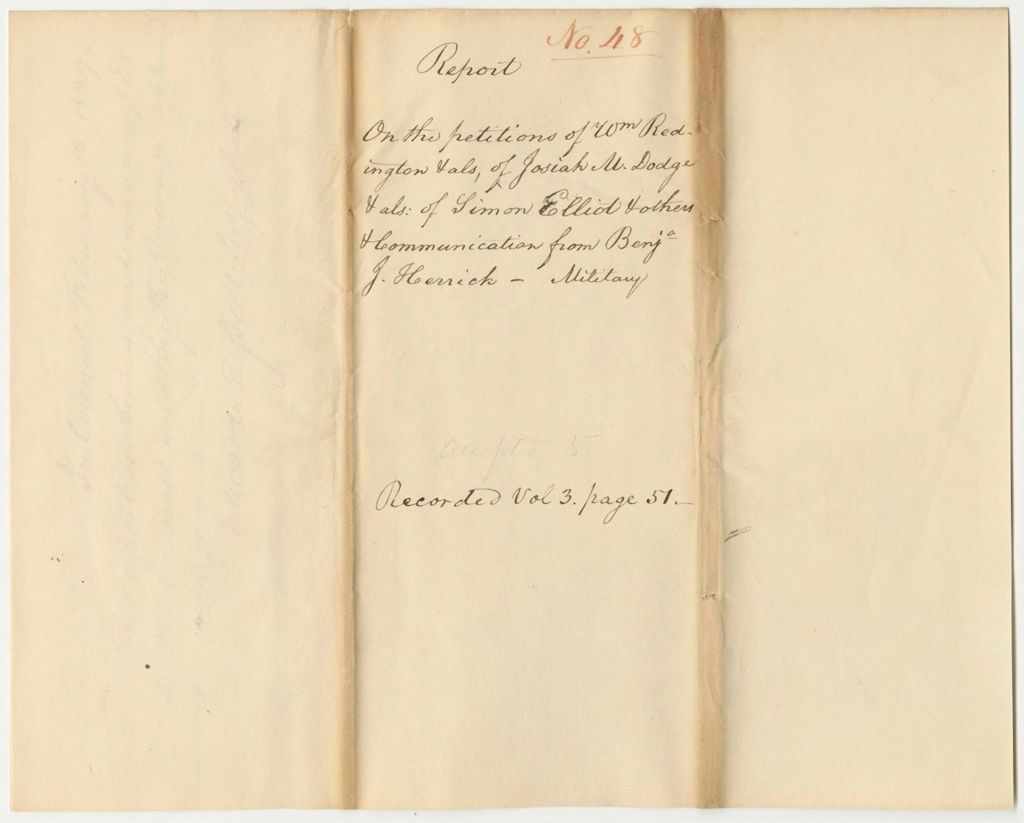 No. 48
Report
On the petitions of Wm Red-
ington & als, of Josiah M. Dodge
& als: of Simon Elliot & others
& Communication from Benja
J. Herrick – Military
accepted 5
Recorded Vol 3. page 51.